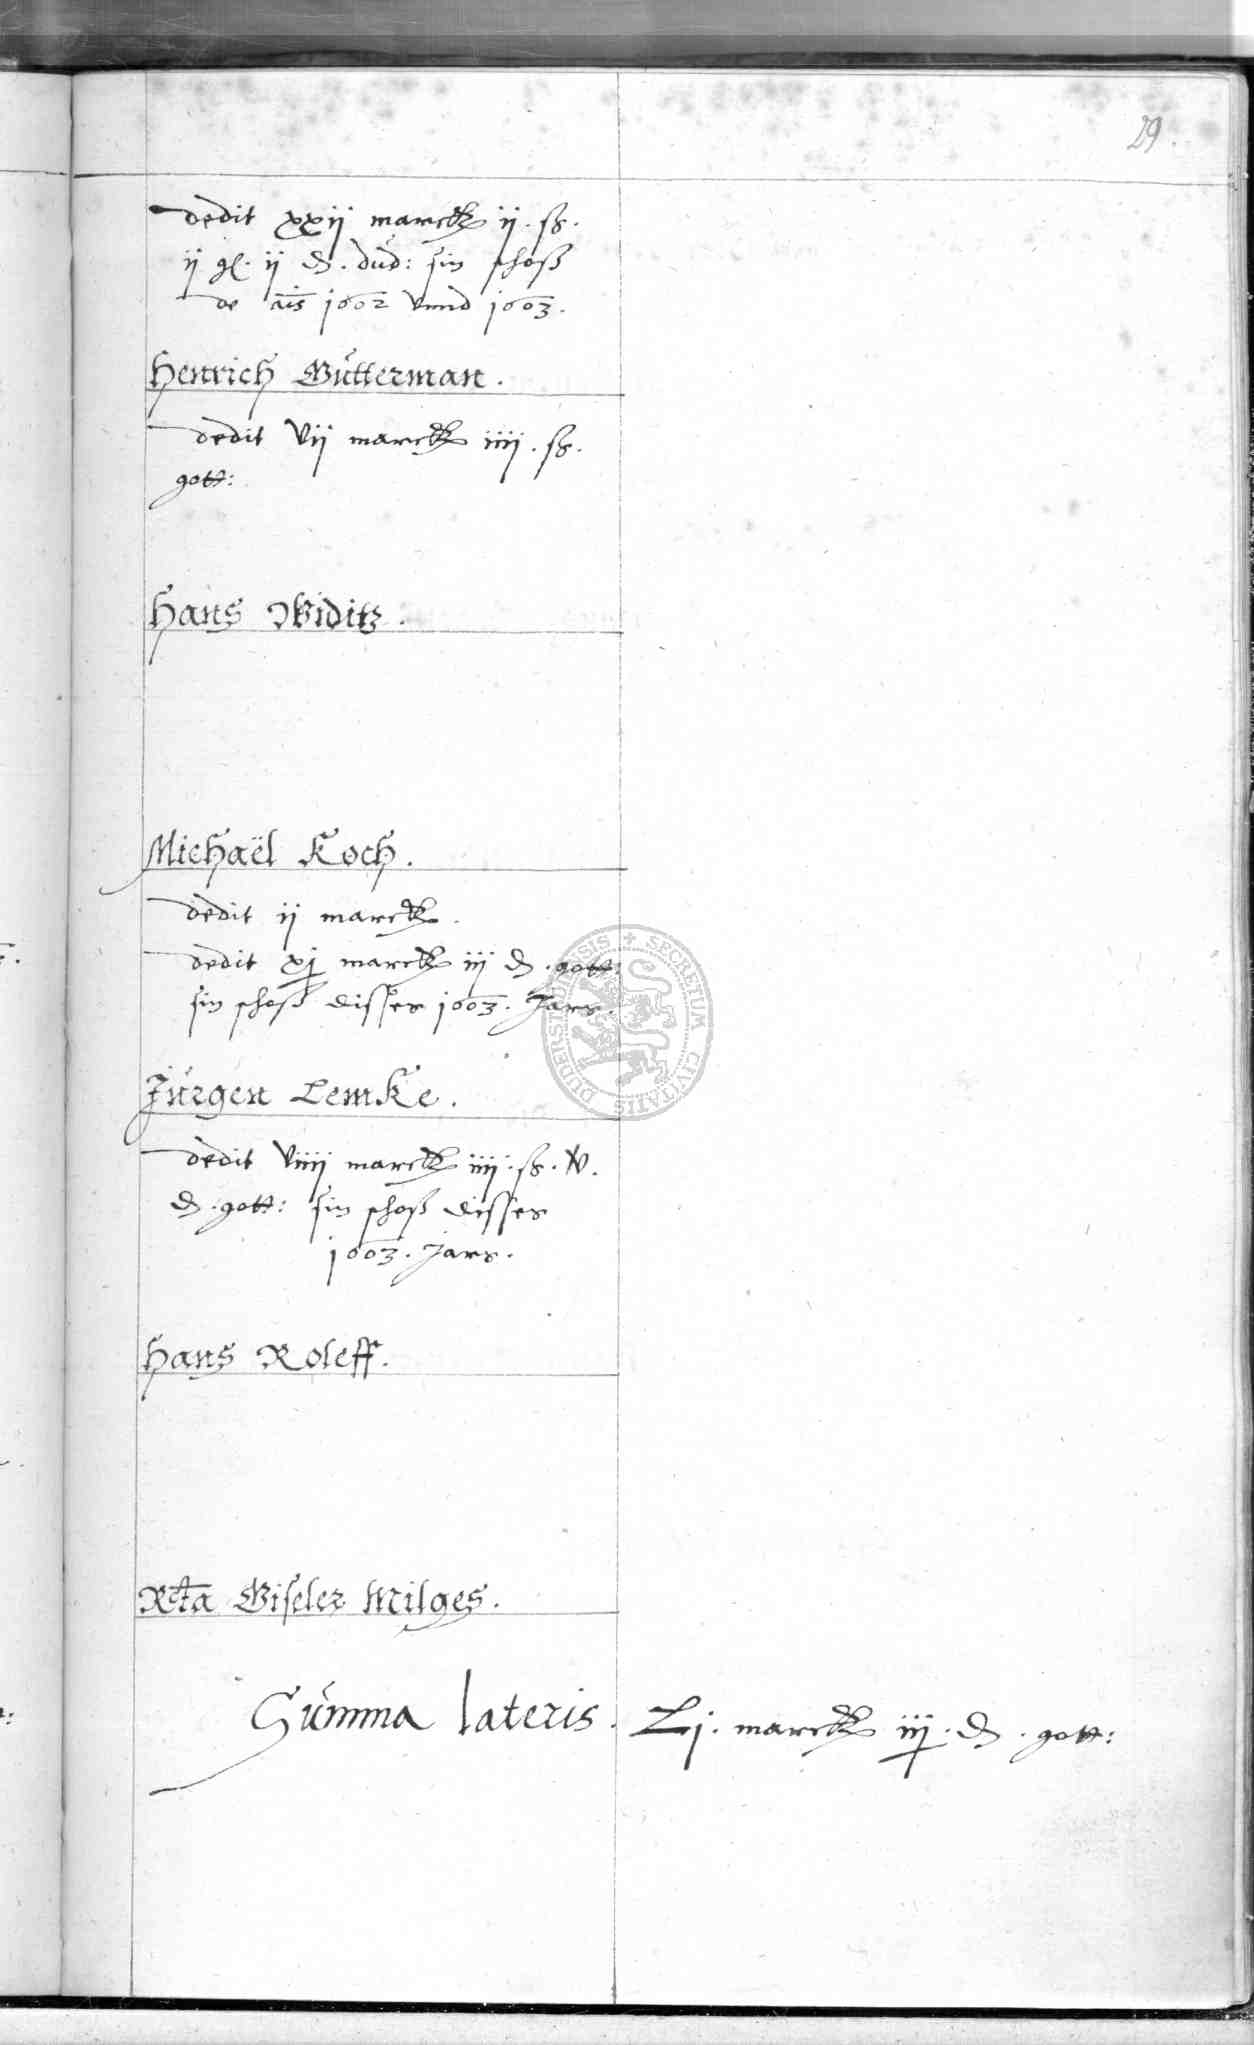 29
dedit xxij marck ij. ß.
ij gl. ij d. dud: sin schoß
de ais 1602 vnnd 1603.
Henrich Gütterman.
dedit vij marck iiij. ß.
gott:
Hans Widitz.
Michaël Koch.
dedit ij marck.
dedit xj marck iij d. gott:
sin schoß disses 1603. Jars.
Jürgen Lemke.
dedit viiij marck iiij. ß. v.
d. gott: sin schoß disses
1603. Jars.
Hans Roleff.
Rcta Giseler Milges.
Summa lateris. Lj. marck iij. d. gott:
SECRETUM CIVITATIS DUDERSTADENSIS